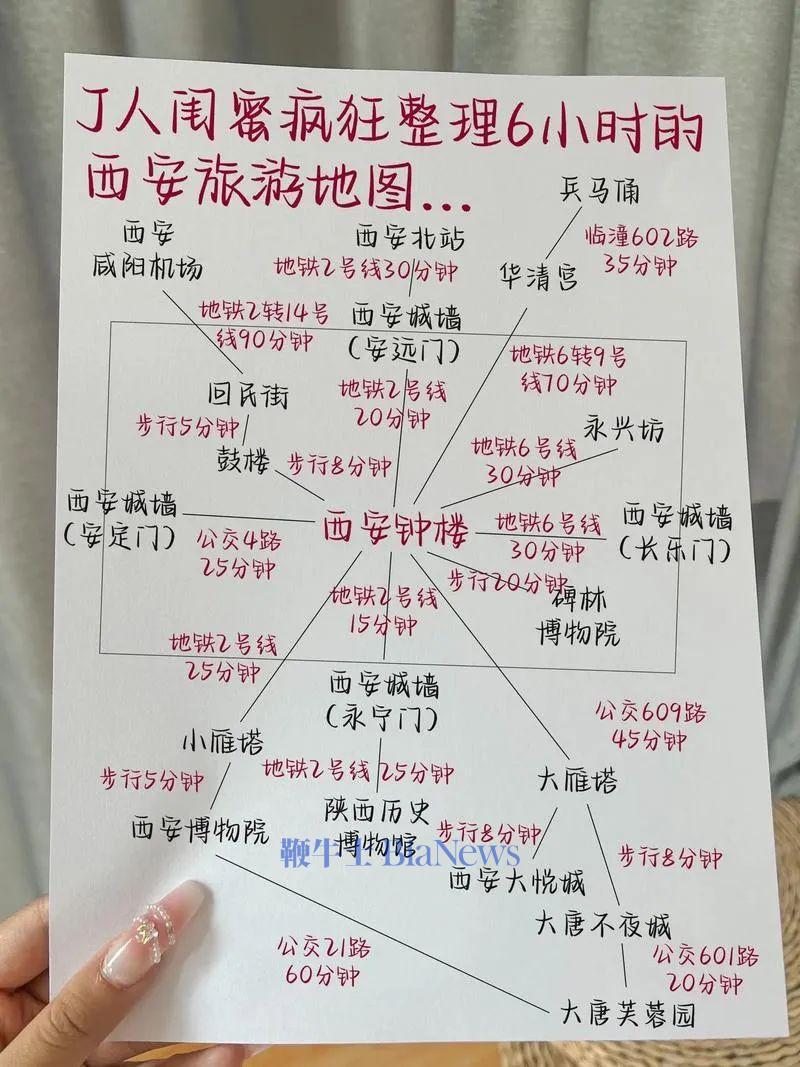 J人闺蜜疯狂整理6小时的
西安旅游地图...
兵马俑
西安
咸阳机场
西安北站
临潼602路
35分钟
地铁2号线30分钟
华清宫
地铁2转14号
线90分钟
西安城墙
(安远门)
地铁6转9号
线70分钟
回民街
地铁2号线
20分钟
步行5分钟
永兴坊
地铁6号线
30分钟
鼓楼
步行8分钟
西安城墙
(安定门)
西安钟楼
地铁6号线
30分钟
西安城墙
(长乐门)
公交4路
25分钟
步行20分钟
碑林
博物院
地铁2号线
15分钟
地铁2号线
25分钟
西安城墙
(永宁门)
公交609路
45分钟
小雁塔
地铁2号线 25分钟
大雁塔
步行5分钟
西安博物院
陕西历史
博物馆
步行8分钟
步行8分钟
鞭牛士 BiaNews
西安大悦城
大唐不夜城
公交21路
60分钟
公交601路
20分钟
大唐芙蓉园